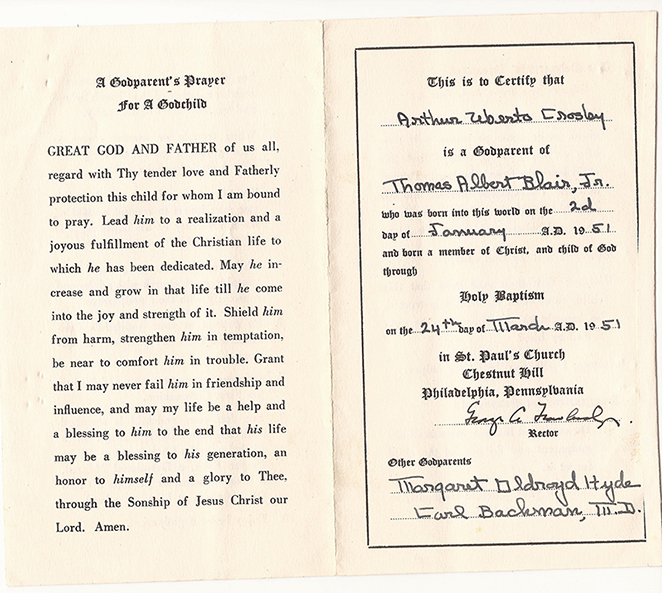 A Godparent's Prayer
For A Godchild
GREAT GOD AND FATHER of us all,
regard with Thy tender love and Fatherly
protection this child for whom I am bound
to pray. Lead him to a realization and a
joyous fulfillment of the Christian life to
which he has been dedicated. May he in-
crease and grow in that life till he come
into the joy and strength of it. Shield him
from harm, strengthen him in temptation,
be near to comfort him in trouble. Grant
that I may never fail him in friendship and
influence, and may my life be a help and
a blessing to him to the end that his life
may be a blessing to his generation, an
honor to himself and a glory to Thee,
through the Sonship of Jesus Christ our
Lord. Amen.
This is to Certify that
Arthur Uberto Crosby
is a Godparent of
Thomas Albert Blair, Jr.
who was born into this world on the 2d
day of January A.D. 1951
and born a member of Christ, and child of God
through
Holy Baptism
on the 24th day of March A.D. 1951
in St. Paul's Church
Chestnut Hill
Philadelphia, Pennsylvania
George A.
Rector
Other Godparents
Margaret Oldroyd Hyde
Carl Bachman, M.D.